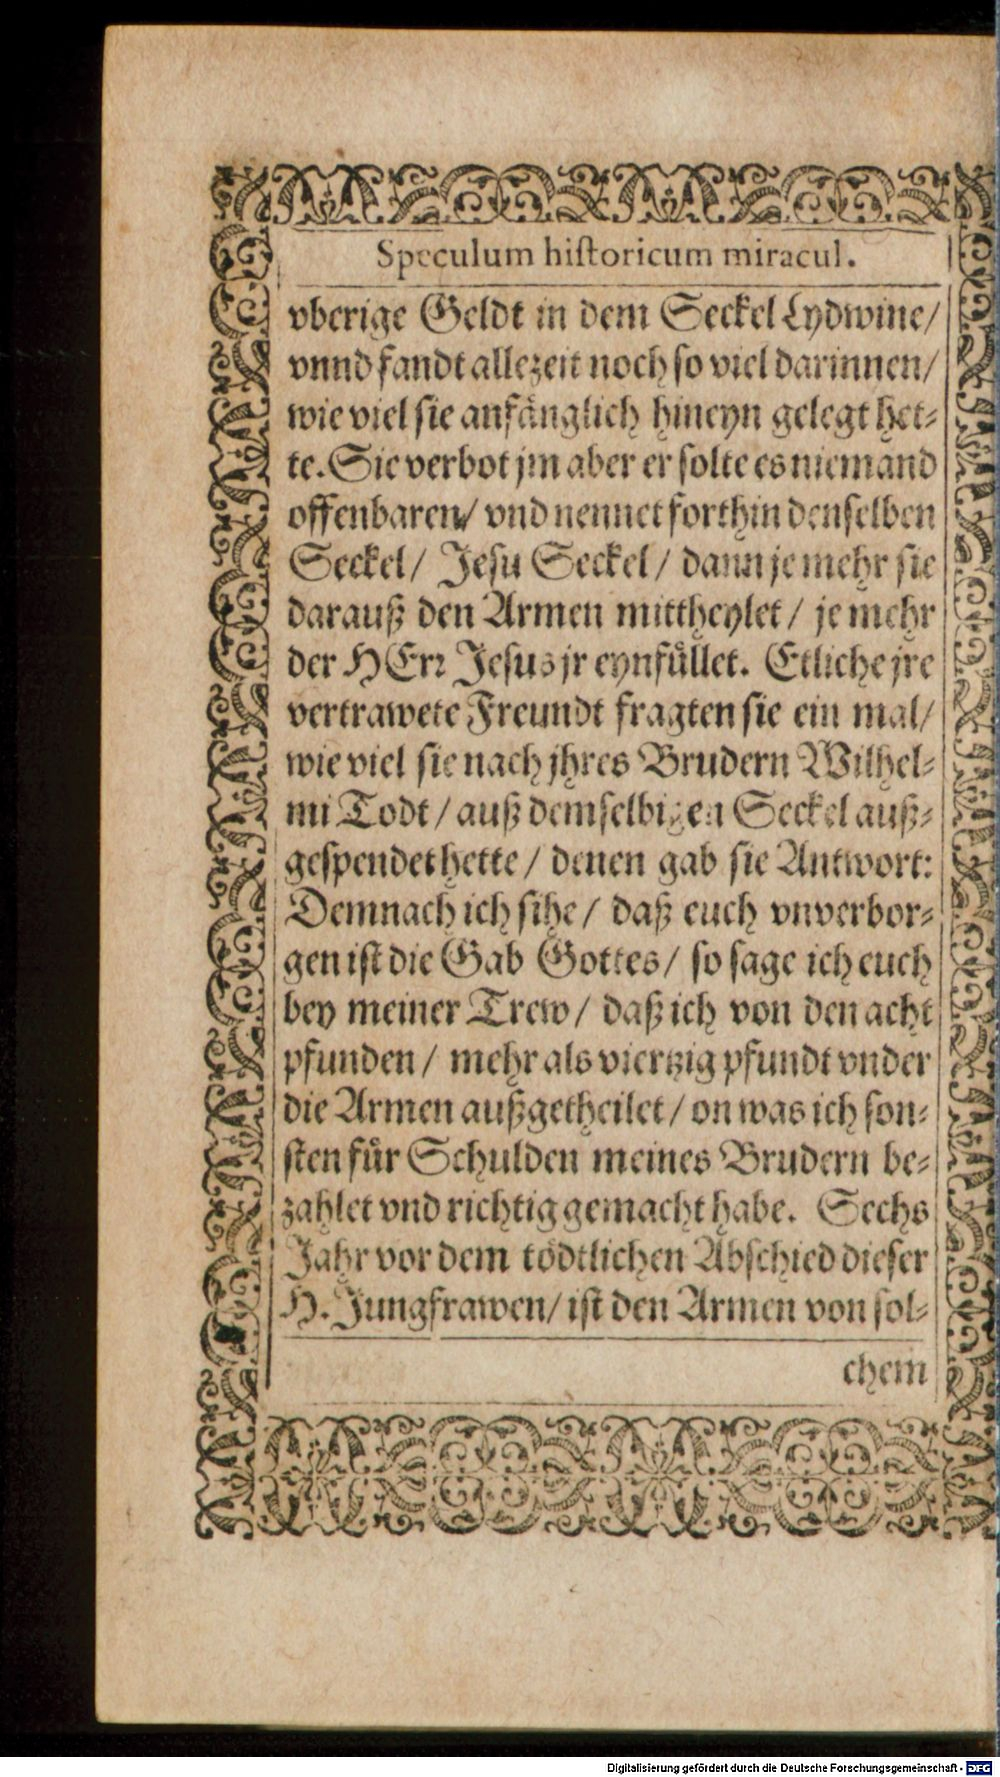 Speculum historicum miracul.
vberige Geldt in dem Seckel Lydwine/
vnnd fandt allezeit noch so viel darinnen/
wie viel sie anfänglich hineyn gelegt het-
te. Sie verbot jm aber er solte es niemand
offenbaren/ vnd nennet forthin denselben
Seckel/ Jesu Seckel/ dann je mehr sie
darauß den Armen mittheylet/ je mehr
der HErr Jesus jr eynfüllet. Etliche jre
vertrawete Freundt fragten sie ein mal/
wie viel sie nach jhres Brudern Wilhel-
mi Todt/ auß demselbigen Seckel auß-
gespendet hette/ denen gab sie Antwort:
Demnach ich sihe/ daß euch vnverbor-
gen ist die Gab Gottes/ so sage ich euch
bey meiner Trew/ daß ich von den acht
pfunden/ mehr als viertzig pfundt vnder
die Armen außgetheilet/ on was ich son-
sten für Schulden meines Brudern be-
zahlet vnd richtig gemacht habe. Sechs
Jahr vor dem tödtlichen Abschied dieser
H. Jungfrawen/ ist den Armen von sol-
chem
Digitalisierung gefördert durch die Deutsche Forschungsgemeinschaft - DFG